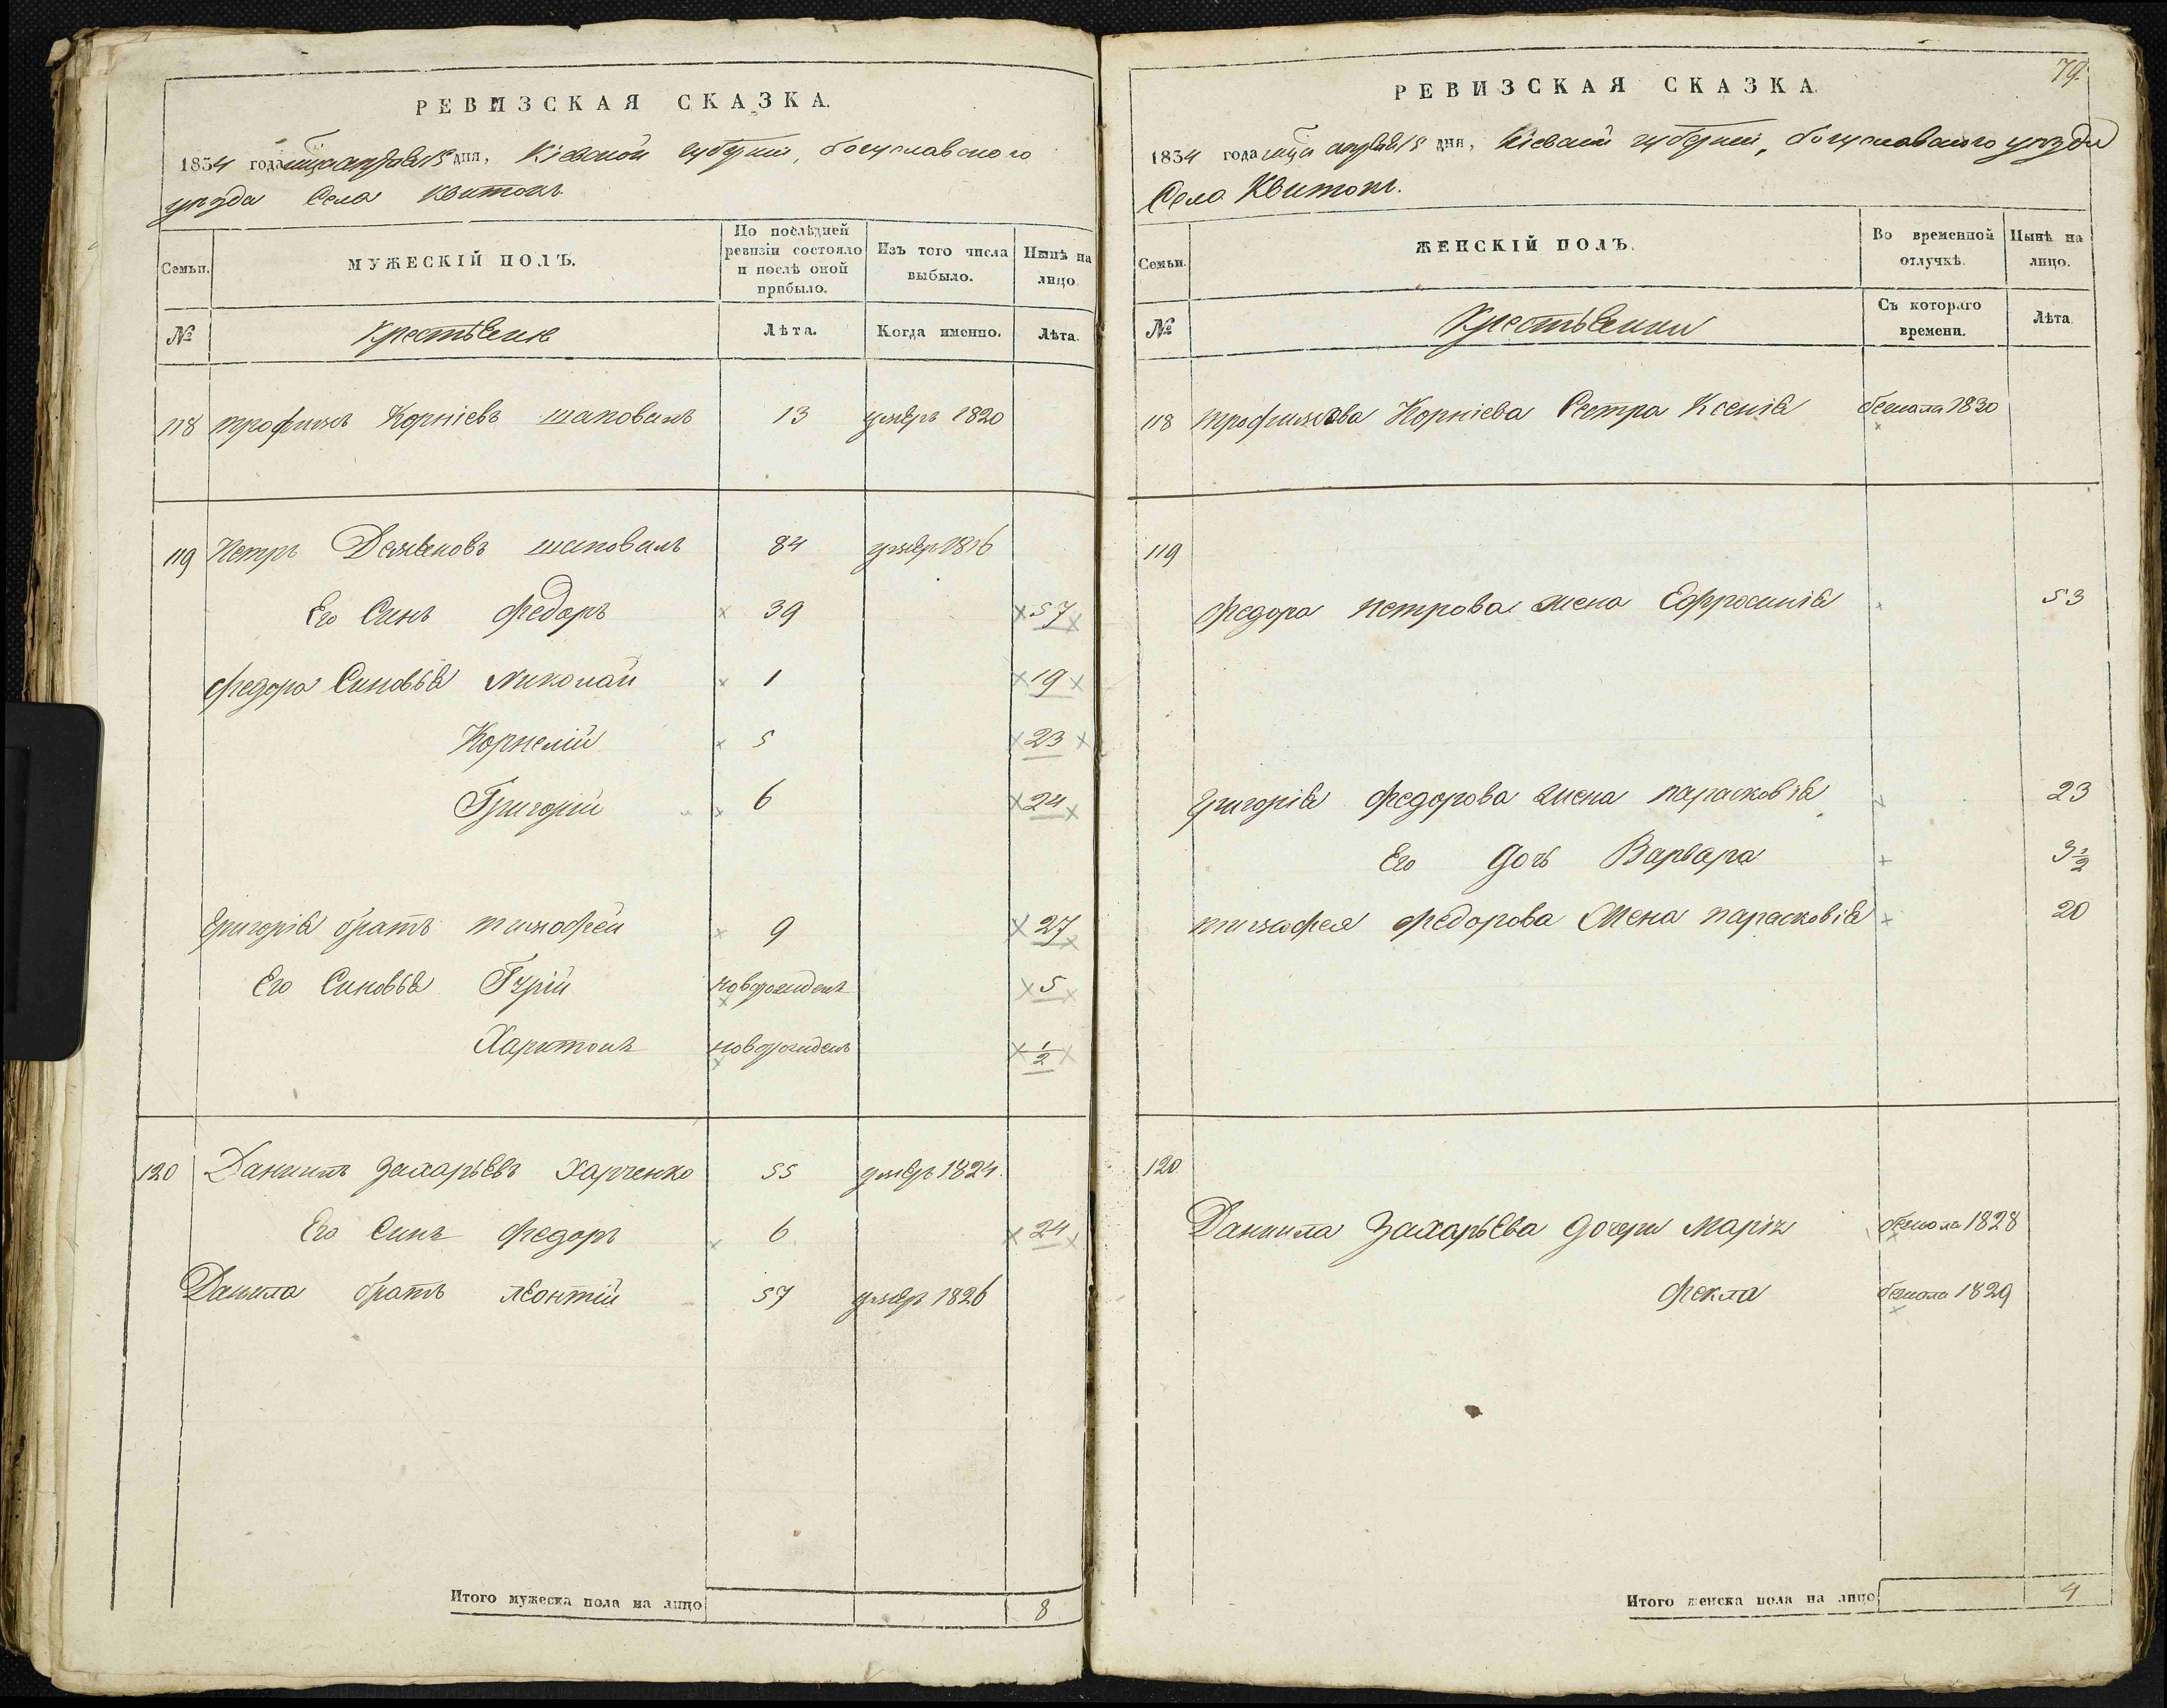 РЕВИЗСКАЯ СКАЗКА.
1834 года мца апреля 15 дня, Кіевской губерніи, богуславского
уезда Села Квитокъ
Семьи. МУЖЕСКІЙ ПОЛЪ. По послѣдней ревизіи состояло и послѣ оной прибыло. Изъ того числа выбыло. Нынѣ на лицо.
№ Крестьяне Лѣта. Когда именно. Лѣта.
118 трофимъ Корніевъ шаповалъ 13 умеръ 1820
119 Петръ Демяновъ шаповалъ 84 умеръ 1816
Его Синъ федоръ 39 57
федора Синовья Николай 1 19
Корнелій 5 23
Григорій 6 24
Григорія братъ тимофей 9 27
Его Синовья Гурій новорожденъ 5
Харитонъ новорожденъ 1/2
120 Даниилъ Захарьевъ Харченко 55 умеръ 1824.
Его Синъ федоръ 6 24
Данила братъ леонтій 57 умеръ 1826
Итого мужеска пола на лицо 8
79.
РЕВИЗСКАЯ СКАЗКА
1834 года мца апреля 15 дня, Кіевской губерніи, богуславского уезда
Села Квитокъ.
Семьи. ЖЕНСКІЙ ПОЛЪ. Во временной отлучкѣ. Нынѣ на лицо.
№ Крестьянки Съ котораго времени. Лѣта.
118 трофимова Корніева Сестра Ксенія бежала 1830
119
федора петрова жена Ефросинія 53
Григорія федорова жена парасковія 23
Его дочь Варвара 3 1/2
тимофея федорова жена парасковія 20
120.
Даниила Захарьева дочери Марія бежала 1828
фекла бежала 1829
Итого женска пола на лицо 4